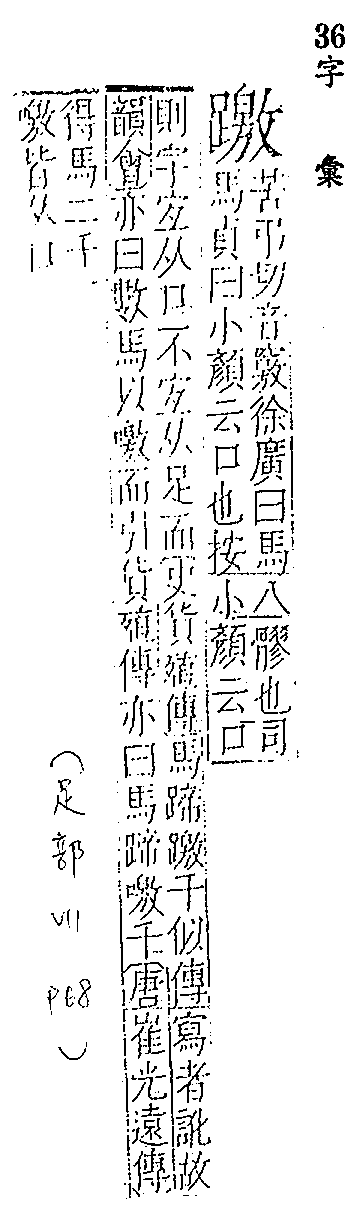 36字彙
蹾
苦弔切音竅徐廣曰馬八髎也司
馬貞曰小顏云口也按小顏云口
則字宜从口不宜从足而史貨殖傳馬蹄躈千似傳寫者訛故
韻會亦曰數馬以噭而引貨殖傳亦曰馬蹄噭千唐崔光遠傳
得馬二千
噭皆从口
(足部 VII P68)